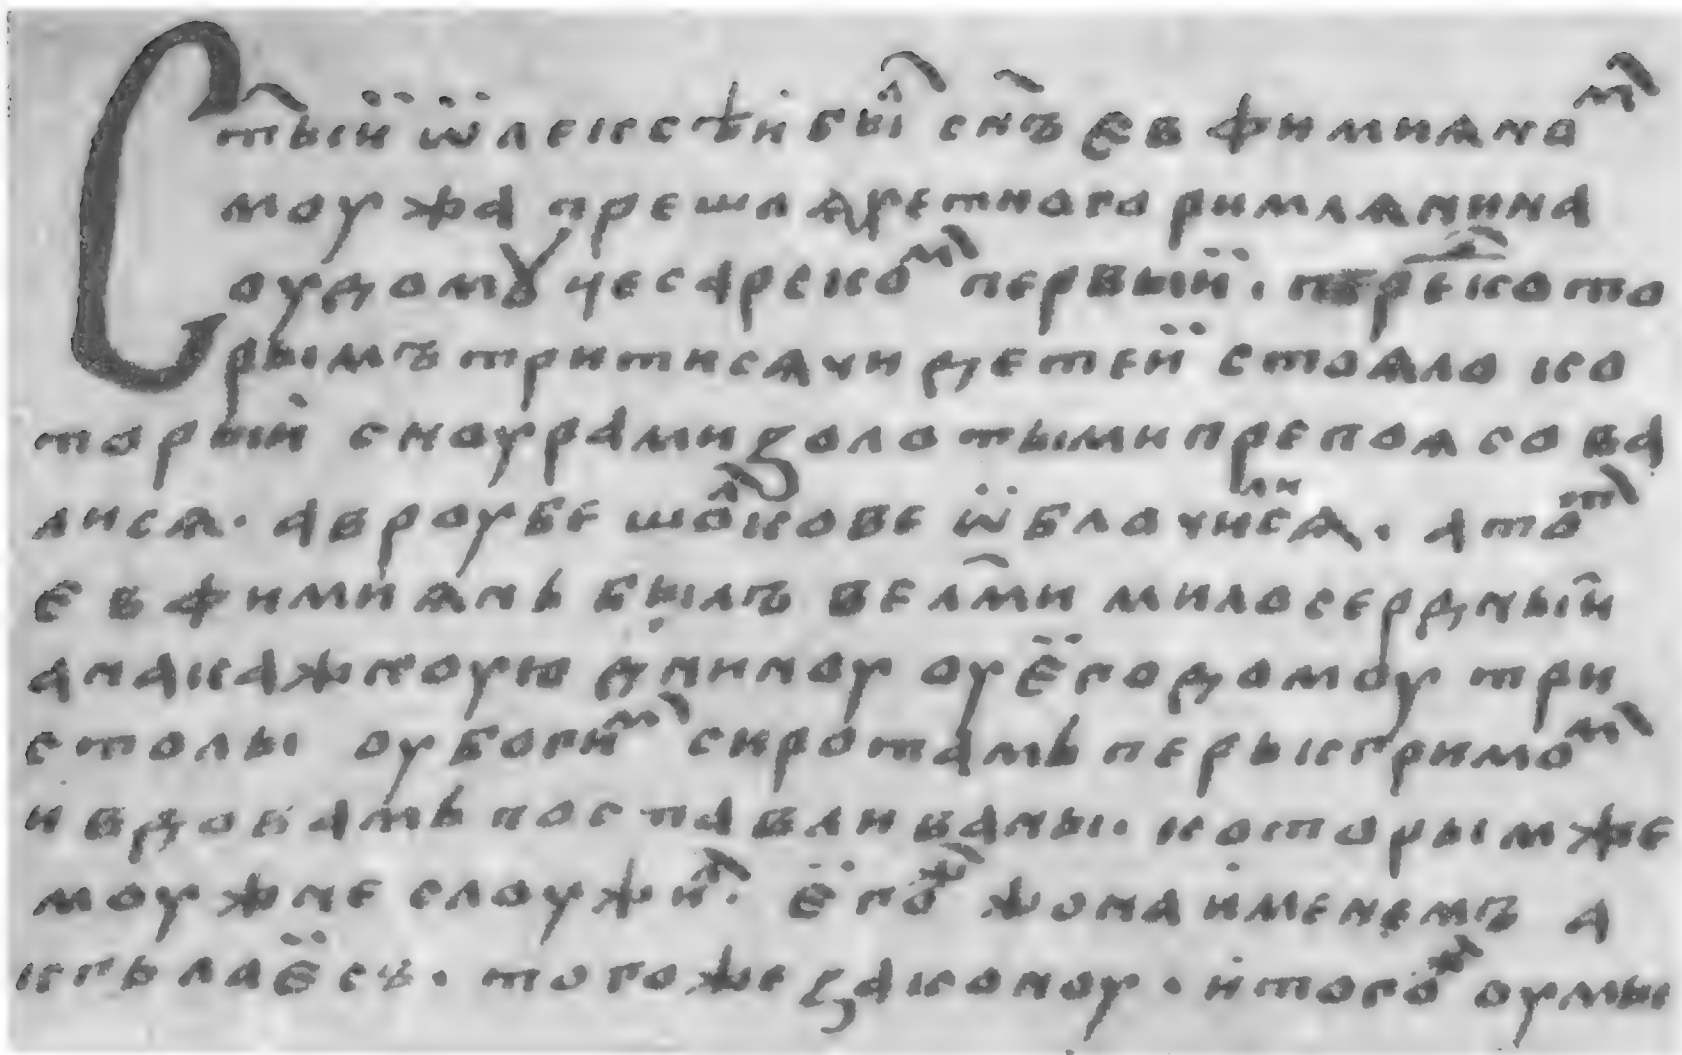 Ст҃ый ѡ̈лексѣй бы̇л сн҃ъ євфимиѧном
моужа прешлѧхетного римлѧнина
оу домꙋ цесарском первый. пе́рє которымъ
рымъ три тисѧчи детей стоѧло ко
торый сноурами золотыми препоѧсова
лисѧ. а в роубе шолкове ѡ̈блочилисѧ. а тот
Євфимиѧнь былъ велми милосердный
а на каждоую днину оу є̈го домоу три
столы оубогим сиротамь перегримом
и вдовамь поставливаны. которым же
моужне слоужил. є̈го ж жона именемъ а
кглає̈съ. того же законоу. и того ж оумы